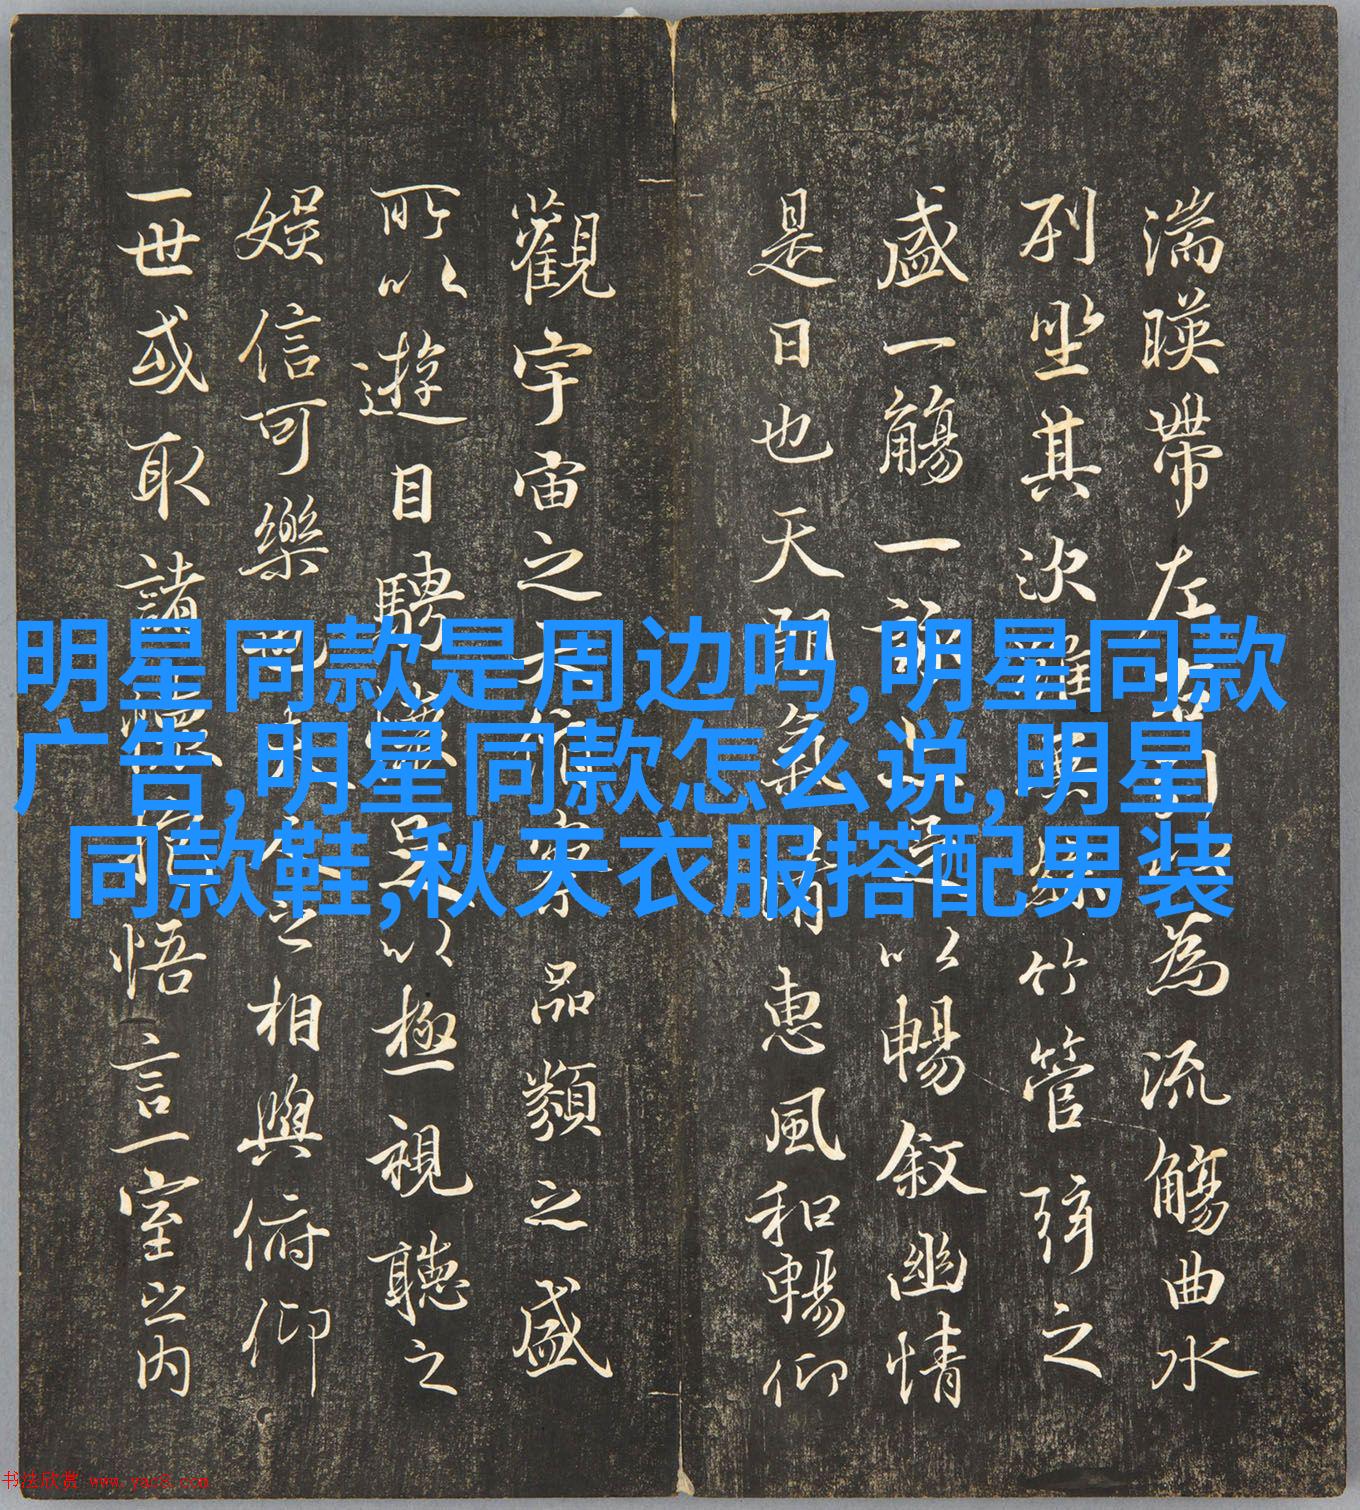 湍暎帶左右引以為流觴曲水
列坐其次雖無絲竹管弦之
盛一觴一詠亦足以暢敘幽情
是日也天朗氣清惠風和暢仰
觀宇宙之大俯察品類之盛
所以遊目騁懷足以極視聽之
娛信可樂也夫人之相與俯仰
一世或取諸懷抱悟言一室之内
明星同款是周边吗,明星同款
广告,明星同款怎么说,明星
同款鞋,秋天衣服搭配男装
书法欣赏 www.yac8.com